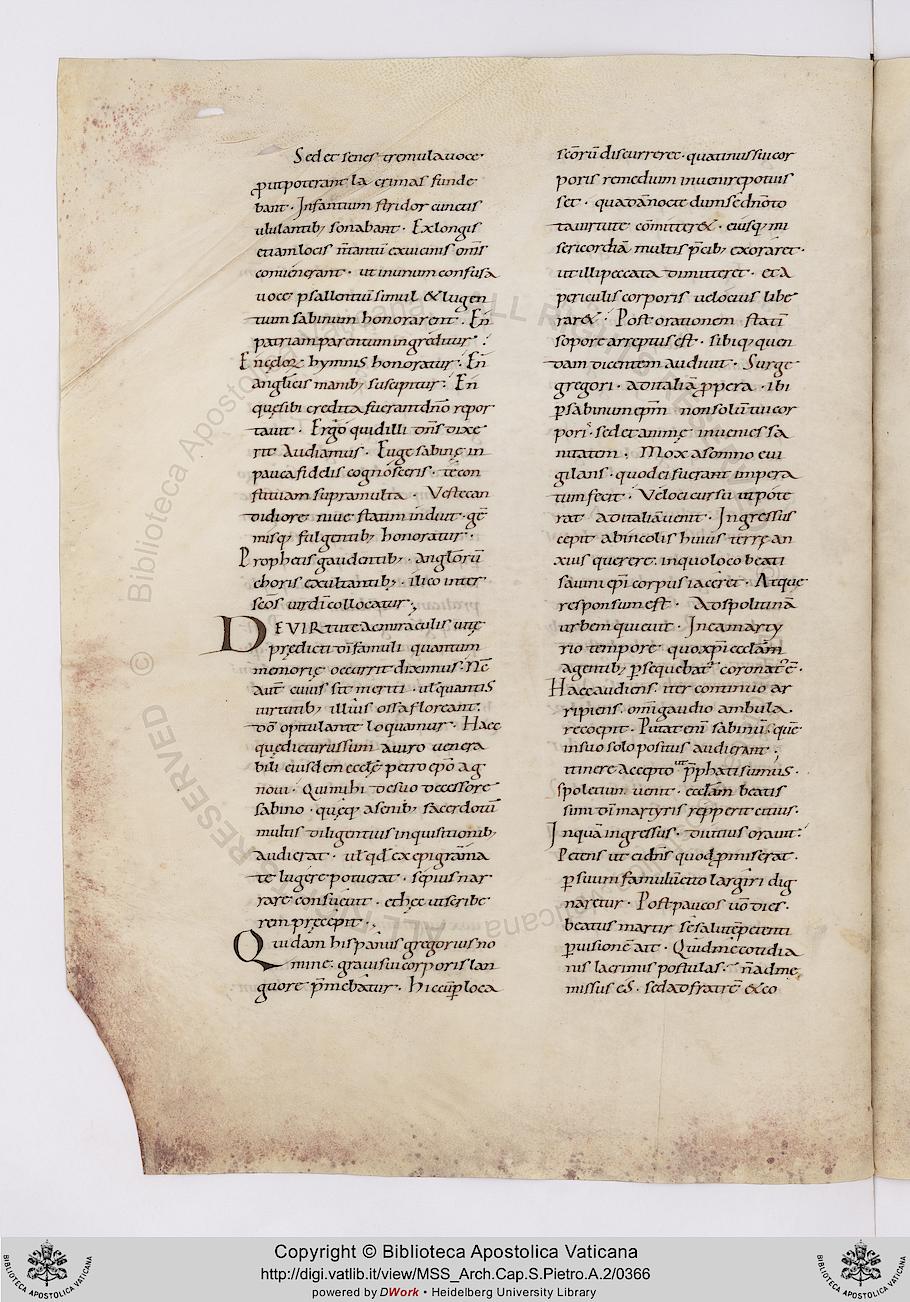 Sed et senes tremula uoce·
ꝓ ut poterant lacrimas funde
bant· Infantium stridor cunctis
ululantib; sonabant· Ex longis
etiam locis m̄tantū ex uicinis om̄s
conuenerant· ut in unum confusa
uoce psallentiū simul & lugen
tum sabinum honorarent· En
patriam parentum ingreditur·
hymnis honoratur· En
anglicis manib; suscipitur· En
quę sibi credita fuerant dn̄o repor
tauit· Ergo quid illi dn̄s dixe
rit Audiamus· Euge sabine in
pauca fidelis cognosceris· te con
stituam supra multa· Veste can
didiore niue statim induit· gē
misq; fulgentib; honoratur·
Prophetis gaudentib;· anglorū
choris exultantib;· ilico inter
sc̄os uiri dī collocatur;
DE VIRtute Ac miraculis uitę
prędicti dī famuli quantum
memorię occurrit diximus· Nc̄
aut̄ cuius sit meriti· ul̄ quantis
uirtutib; illius ossa floreant·
dō opitulante loquamur· Haec
quę dicturus sum a uiro uenera
bili eiusdem eccl̄ę petro ep̄o ag
noui· Qui mihi de suo decessore
sabino· quęq; a senib; sacerdotū
multis diligentius inquisitionib;
audierat· ul̄ qd̄ ex epigrāma
te lugere potuerat· sępius nar
rare consueuit· et hęc ut scribe
rem pręcepit·
Quidam hispanus gregorius no
mine· graui sui corporis lan
guore p̄mebatur· Hic cū ꝑ loca
sc̄orū discurreret· quatinus sui cor
poris remedium inuenire potuis
set· quadā nocte dum se dn̄o to
ta uirtute cōmitter&· eiusq; mi
sericordiā multis p̄cib; exoraret·
ut illi peccata dimitteret· et a
periculis corporis uelocius libe
rar&· Post orationem statī
sopore arreptus est· sibiq; quen
dam dicentem audiuit· Surge
gregori· ad italiā ꝓpera· ibi
ꝑ sabinum ep̄m non solū tui cor
poris· sed et animę inuenies sa
nitatem· Mox a somno eui
gilans· quod ei fuerant impera
tum fecit· Veloci cursu ut pote
rat ad italiā uenit· Ingressus
cepit ab incolis huius terrę an
xius querere· in quo loco beati
sauini ep̄i corpus iaceret· Atque
responsum est· Ad spolitinā
urbem quieuit· In ea martyr
rio tempore quo xp̄i eccl̄am
agentib; ꝑsequebat᷒ coronat᷒ ē·
Haec audiens iter continuo ar
ripiens· om̄i gaudio ambula
re coepit· Putat eni sabinū· quē
in suo solo positus audierant;
itinere accepto ut p̄phati sumus·
spoletium uenit· eccl̄am beatis
simi dī martyris repperit cuius·
In quā ingressus· diutius orauit·
Petens ut ei dn̄s quod ꝓmiserat·
ꝑ suum famulū cito largiri dig
naretur· Post paucos uō dies·
beatus martir se salutē petenti
ꝑ uisionē ait· Quid me cotidia
nis lacrimis postulas· n̄ ad me
missus es· sed ad fratrē & co
Copyright © Biblioteca Apostolica Vaticana
http://digi.vatlib.it/view/MSS_Arch.Cap.S.Pietro.A.2/0366
powered by DWork • Heidelberg University Library
BIBLIOTECA APOSTOLICA VATICANA
BIBLIOTECA APOSTOLICA VATICANA